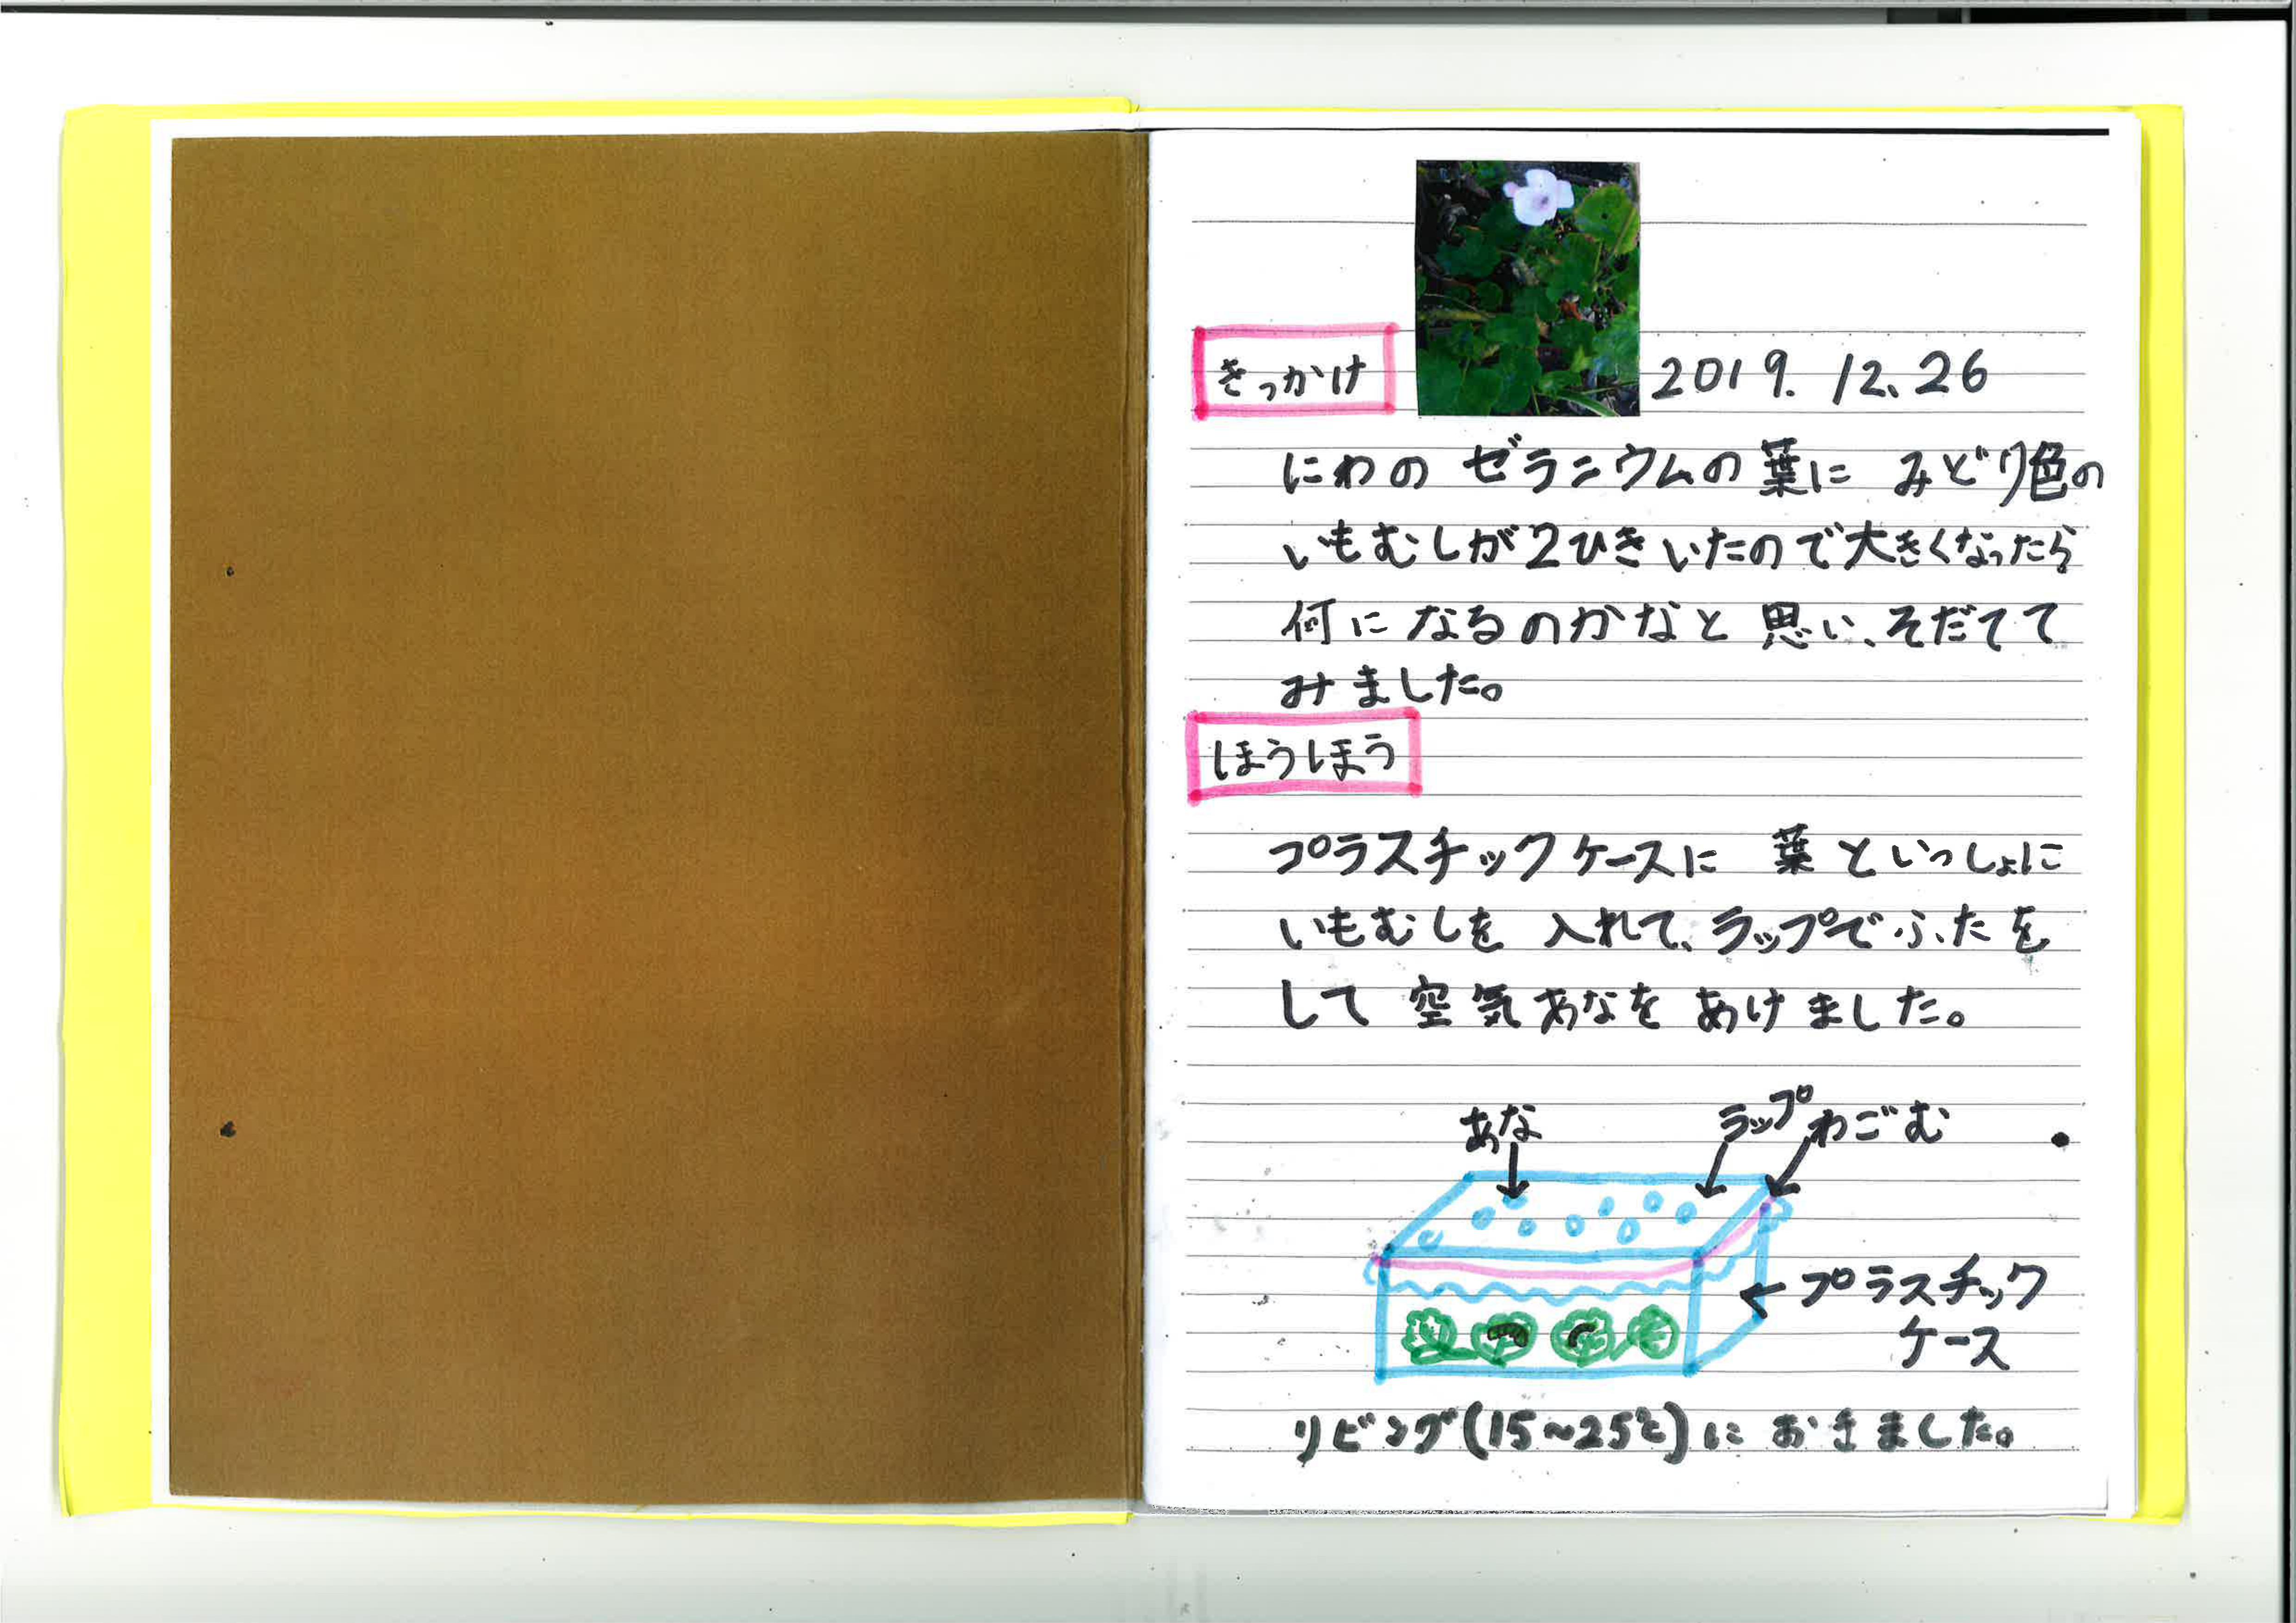 きっかけ
2019.12.26
にわの ゼラニウムの葉に みどり色の
いもむしが2ひきいたので大きくなったら
何に なるのかなと 思い、そだてて
みました。
ほうほう
プラスチックケースに 葉 といっしょに
いもむしを 入れて、ラップでふたを
して 空気あなを あけました。
あな
ラップ
わごむ
プラスチック
ケース
リビング(15~25℃)に おきました。